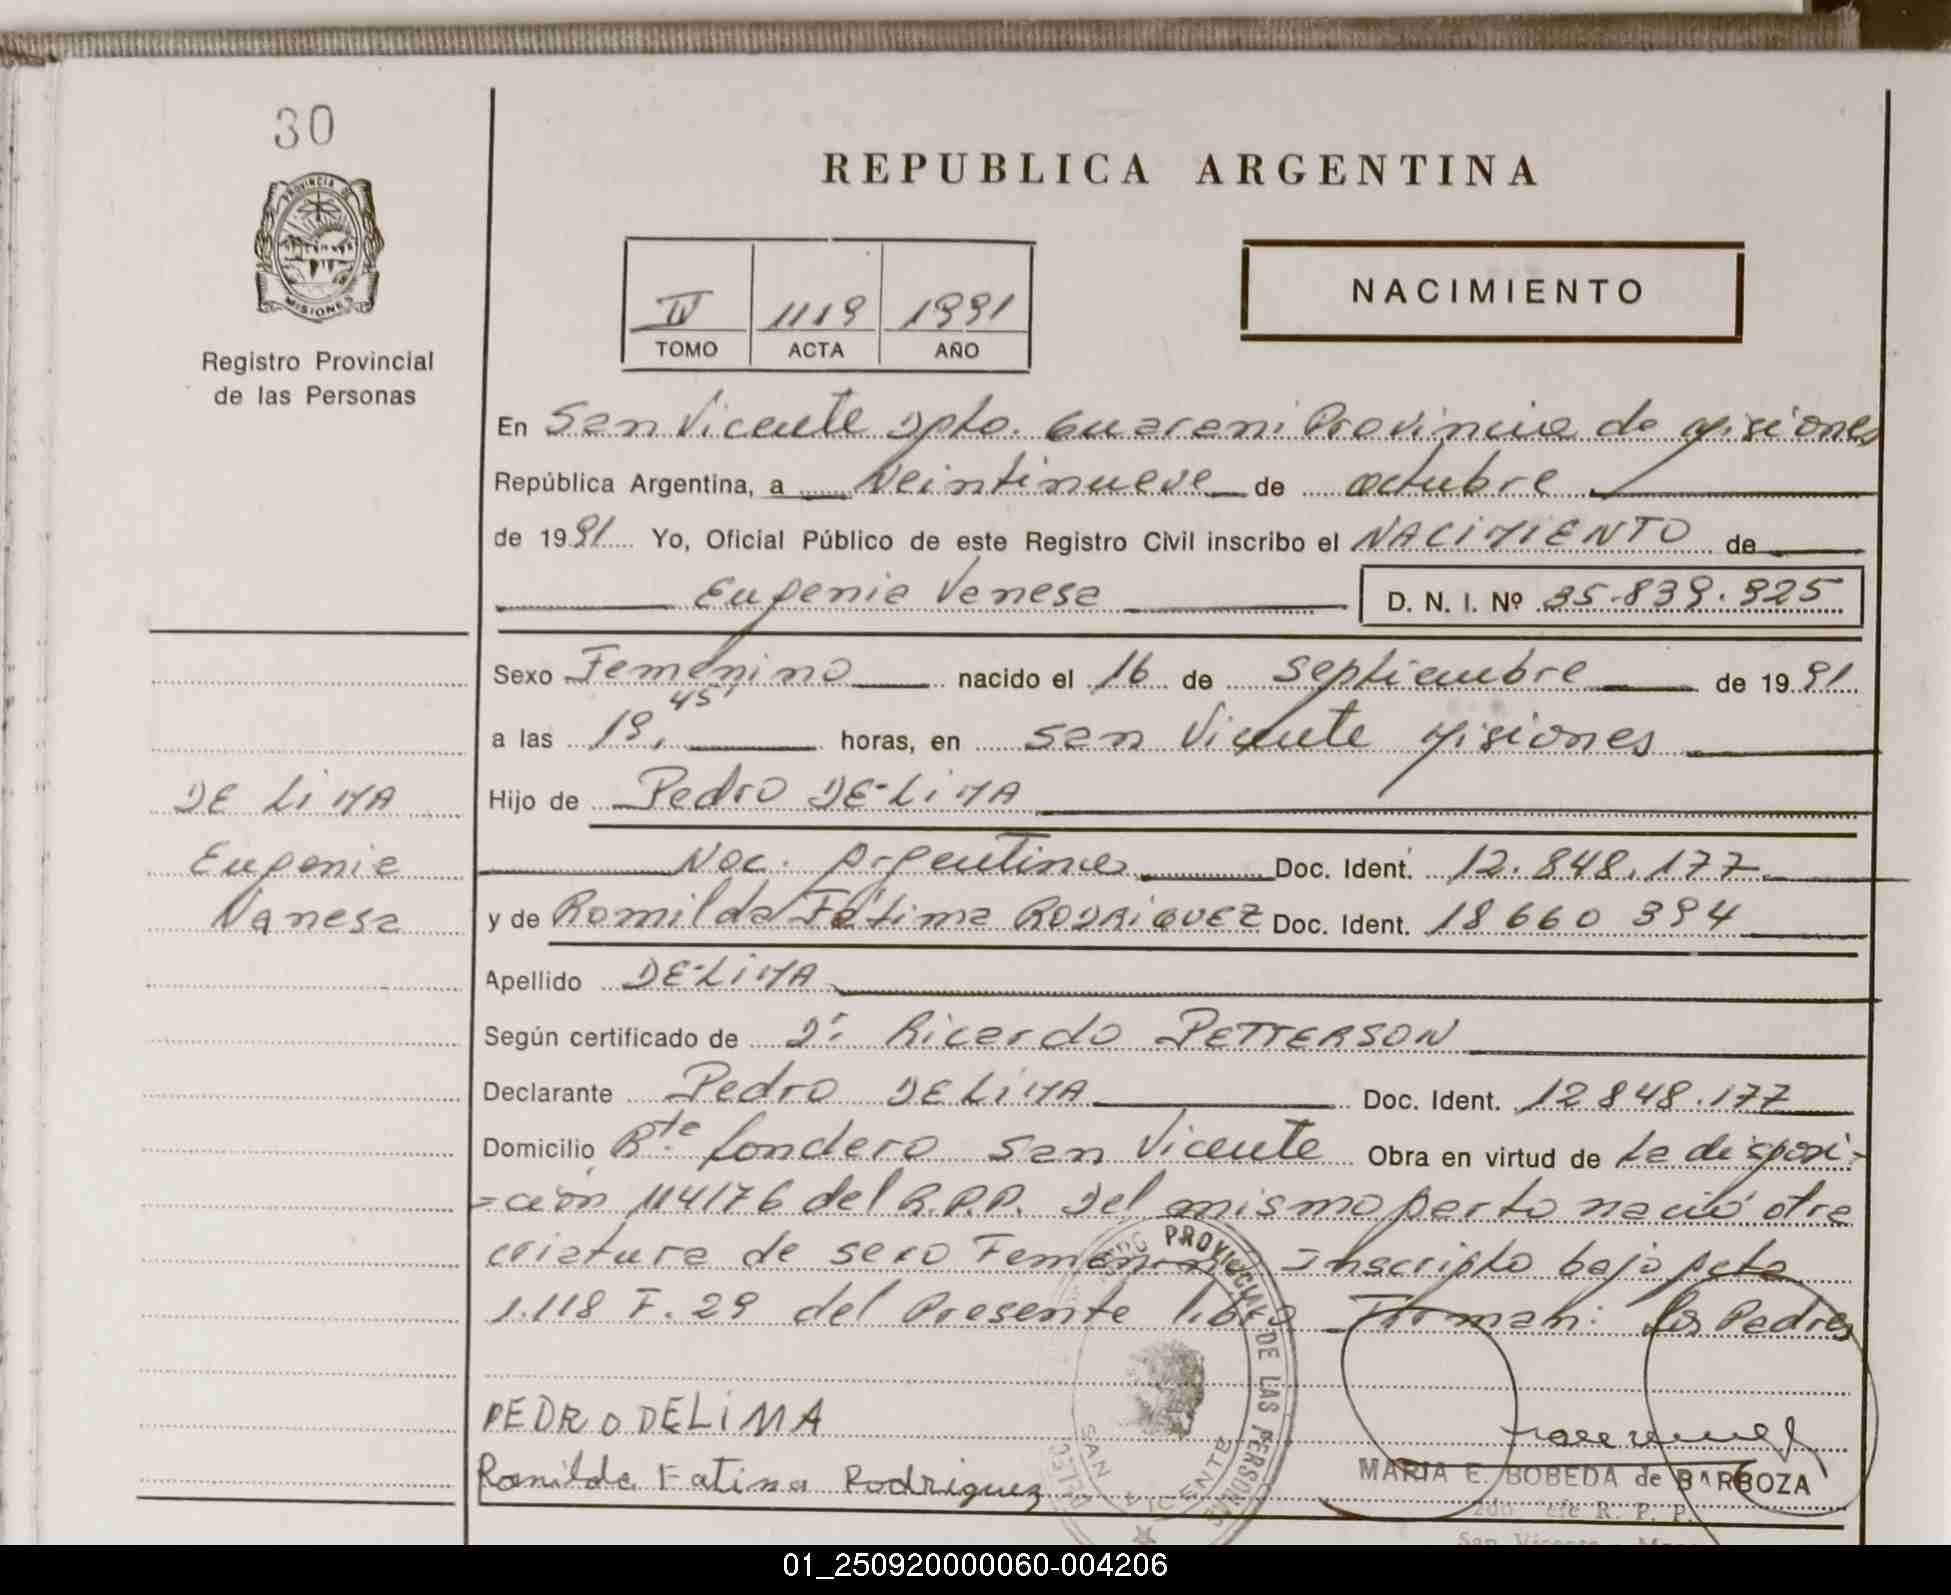 30
PROVINCIA DE
MISIONES
Registro Provincial
de las Personas
REPUBLICA ARGENTINA
IV 1119 1991
TOMO ACTA AÑO
NACIMIENTO
En San Vicente Dpto. Guarani Provincia de Misiones
República Argentina, a Veintinueve de octubre
de 1991 Yo, Oficial Público de este Registro Civil inscribo el NACIMIENTO de
Eugenia Vanesa D. N. I. Nº 35.839.925
Sexo Femenino nacido el 16 de Septiembre de 1991
a las 19,45' horas, en San Vicente Misiones
DE LiMA
Hijo de Pedro DE-LiMA
Eugenia
Nac. Argentina Doc. Ident. 12.848.177
Vanesa
y de Romilda Fátima RODRiGUEZ Doc. Ident. 18 660 394
Apellido DE-LiMA
Según certificado de Dr. Ricardo PETTERSON
Declarante Pedro DE LiMA Doc. Ident. 12848.177
Domicilio Rte fondero San Vicente Obra en virtud de La disposi-
=ción 114176 del R.P.P. Del mismo parto nació otra
criatura de sexo Femenino Inscripto bajo Acta
1.118 F. 29 del Presente libro Firman: los Padres
PEDRO DELiMA
Romilda Fatima Rodriguez
PROVINCIAL DE LAS PERSONAS
SAN VICENTE
MARIA E. BOBEDA de BARBOZA
2do Jefe R. P. P.
01_250920000060-004206